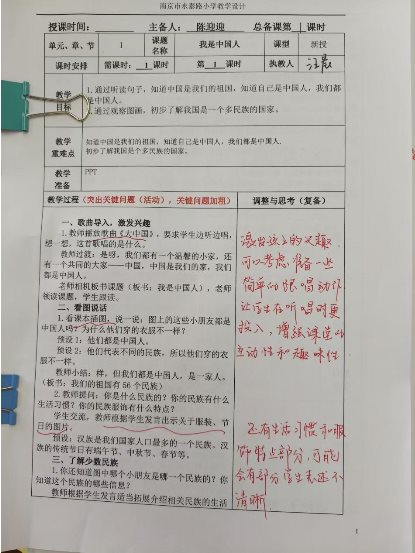 南京市水影路小学教学设计
授课时间： 主备人：陈迎迎 总备课第 1 课时
单元、章、节 1 课题名称 我是中国人 课型 新授
课时安排 需课时：1 课时 第 1 课时 执教人
教学目标
1.通过听读句子，知道中国是我们的祖国，知道自己是中国人，我们都是中国人。
2.通过观察图画，初步了解我国是一个多民族的国家。
教学重难点
知道中国是我们的祖国，知道自己是中国人，我们都是中国人。
初步了解我国是个多民族的国家。
教学准备
PPT
教学过程（突出关键问题（活动），关键问题加粗） 调整与思考（复备）
一、歌曲导入，激发兴趣
1.教师播放歌曲《大中国》，要求学生边听边唱，
想一想，这首歌唱的是什么。
教师过渡：是呀，我们都有一个温馨的小家，还
有一个共同的大家——中国，中国是我们的家，我们
都是中国人。
老师相机板书课题（板书：我是中国人），老师
领读课题，学生跟读。
二、看图说话
1.看课本插图，说一说：图上的这些小朋友都是
中国人吗？为什么他们穿的衣服不一样？
预设1：他们都是中国人。
预设2：他们代表不同的民族，所以他们穿的衣
服不一样。
教师小结：样，但我们都是中国人，是一家人。
（板书：我们的祖国有56个民族）
2.教师提问：你是什么民族的？你的民族有什么
生活习惯？你的民族服饰有什么特点？
学生交流，教师根据学生发言出示关于服装、节
日的图片。
预设：汉族是我们国家人口最多的一个民族，汉
族的传统节日有端午节、中秋节、春节等。
三、了解少数民族
1.你还知道图中哪个小朋友是哪一个民族的？你
知道这个民族的哪些信息？
教师根据学生发言适当拓展介绍相关民族的生活
激发孩子的兴趣，
可以考虑准备一些
简单的跟唱动作
让学生在听唱时更
投入，增强课堂的
互动性和趣味性
还有生活习惯和服
饰特点部分，可能
会有部分学生表述不
清晰
1